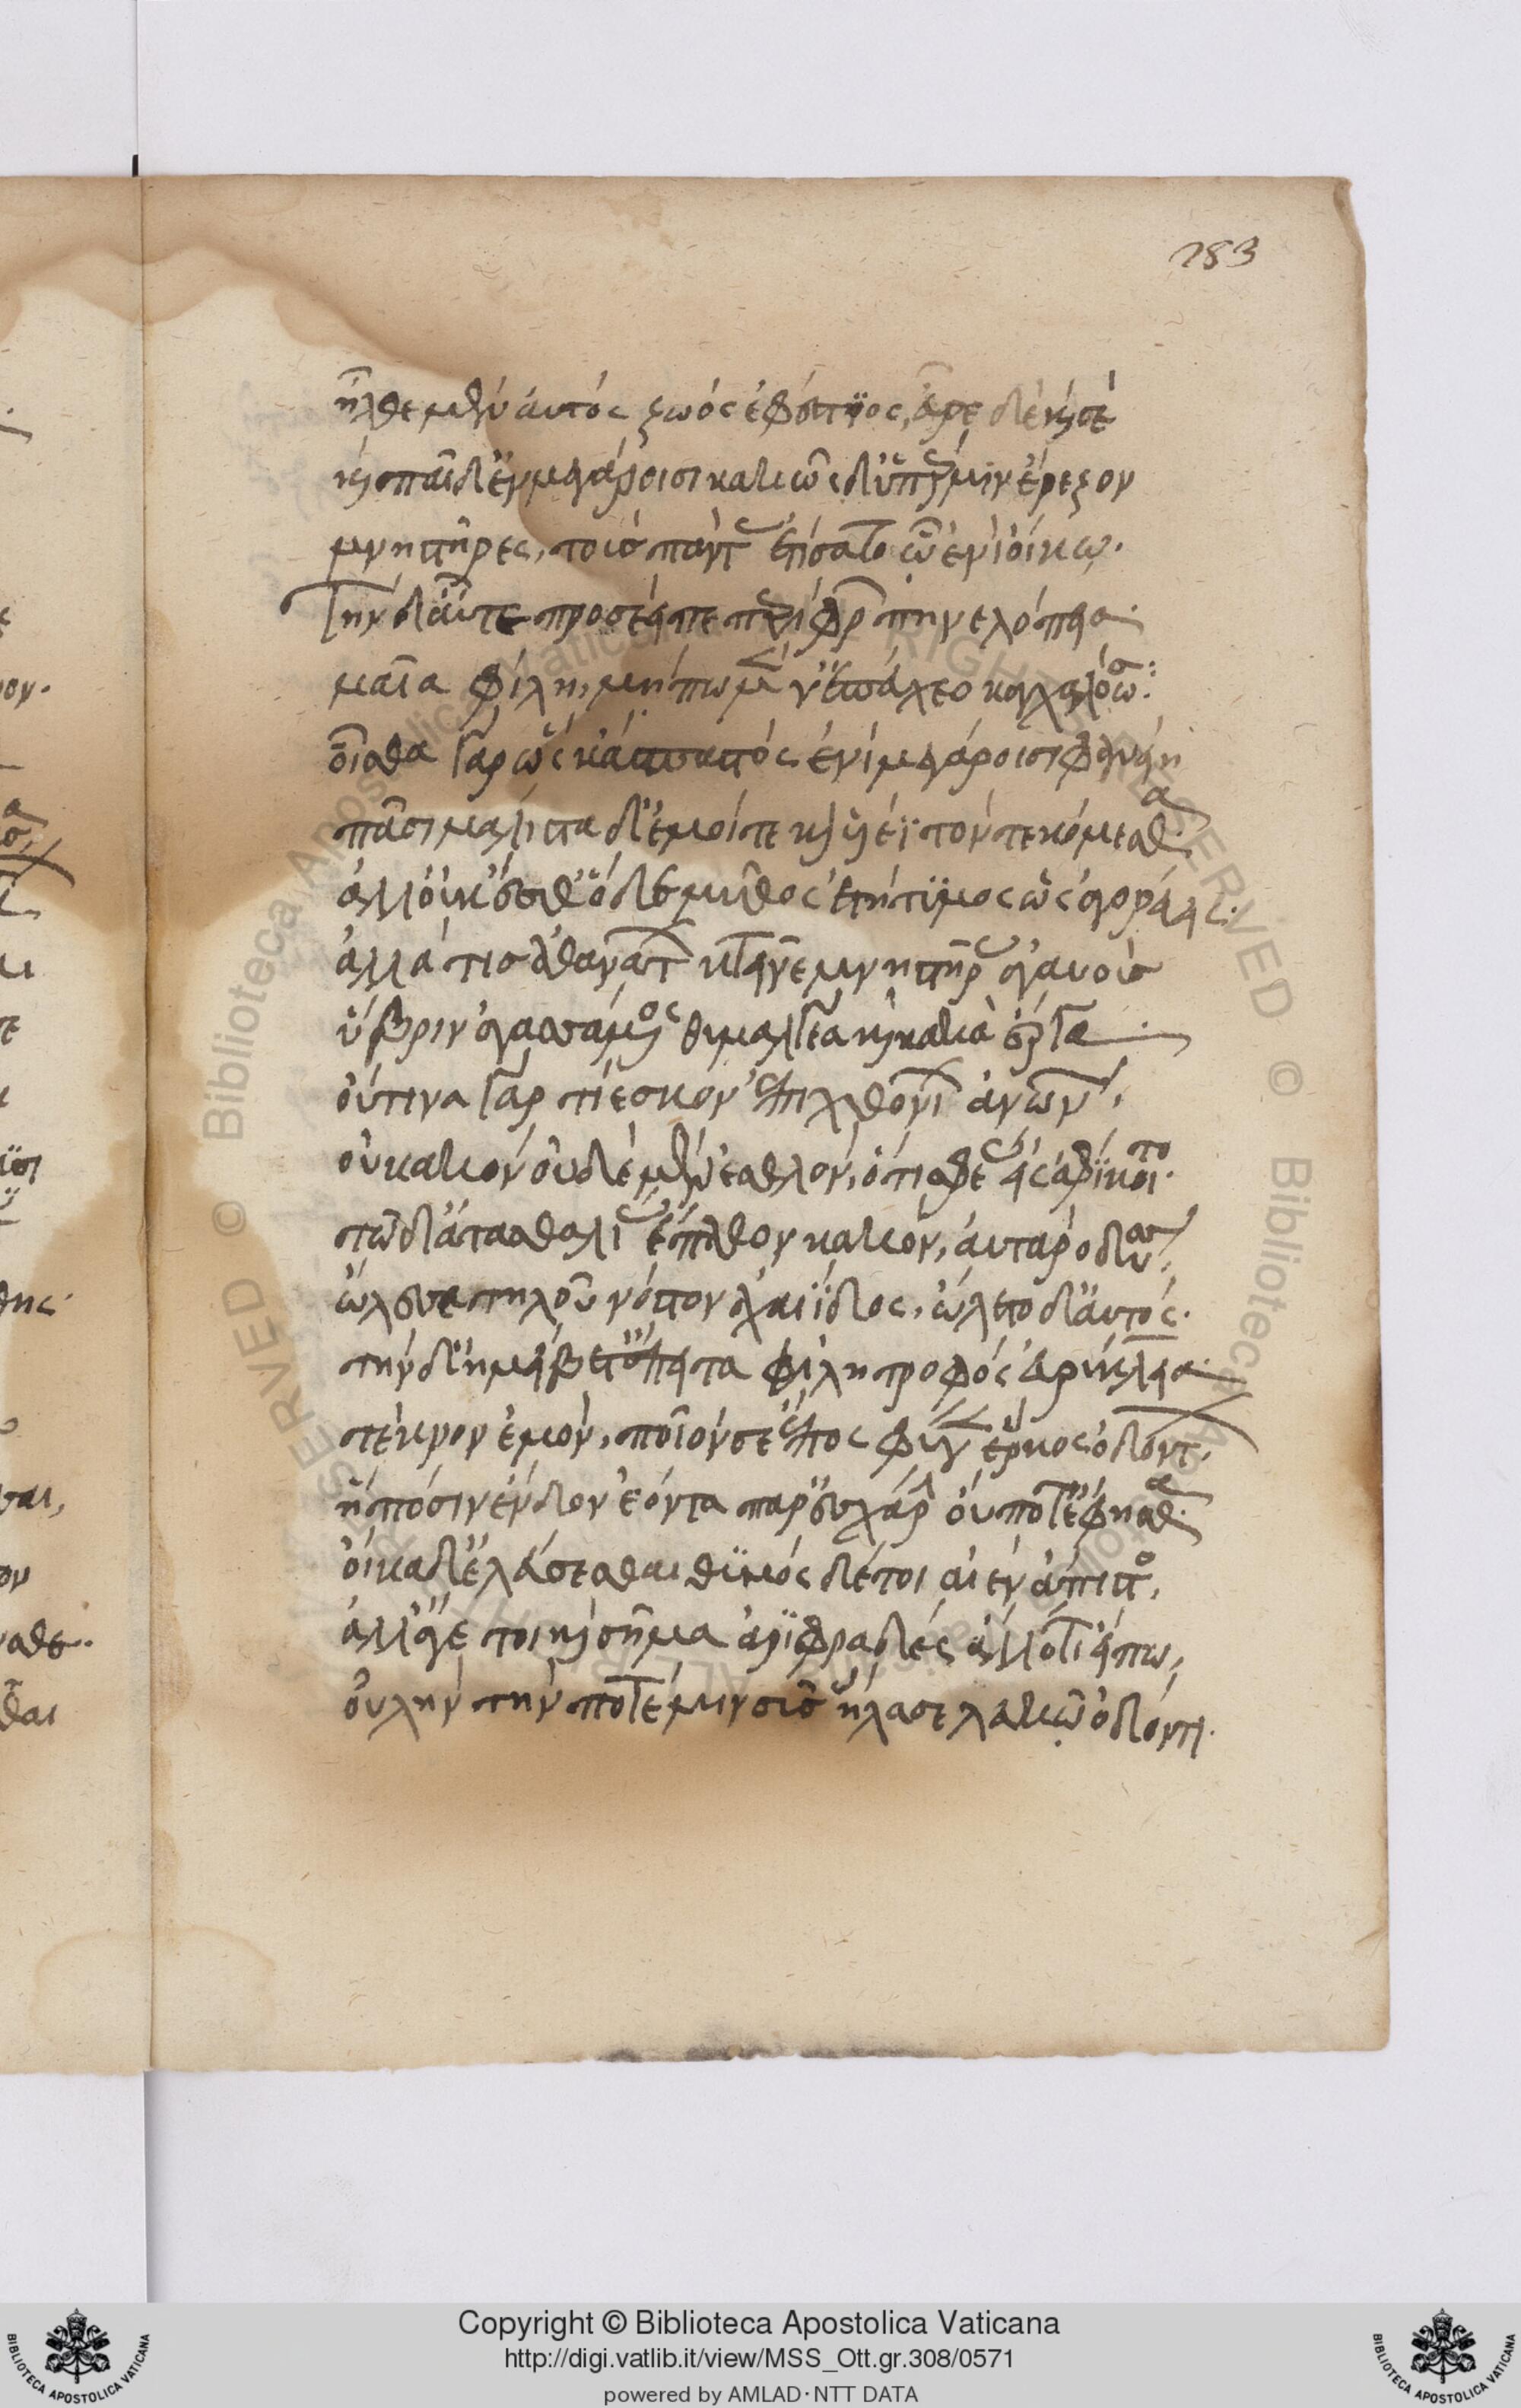 283
ἦλθε μὲν αὐτὸς ζωὸς ἐφέστιος, εὗρε δὲ καὶ σέ
καὶ παῖδ' ἐν μεγάροισι κακῶς δ' οἵπερ μιν ἔρεζον
μνηστῆρες, τοὺς πάντας ἐτίσατο ᾧ ἐνὶ οἴκῳ.
Τὴν δ' αὖτε προσέειπε περίφρων πηνελόπεια·
μαῖα φίλη, μήπω μέγ' ἐπεύχεο καγχαλόωσα:
οἶσθα γὰρ ὥς κ' ἀσπαστὸς ἐνὶ μεγάροισι φανείη
πᾶσι μάλιστα δ' ἐμοί τε καὶ υἱέϊ τὸν τεκόμεσθα.
ἀλλ' οὐκ ἔσθ' ὅδε μῦθος ἐτήτυμος ὡς ἀγορεύεις.
ἀλλά τις ἀθανάτων κτεῖνε μνηστῆρας ἀγαυοὺς
ὕβριν ἀγασσάμενος θυμαλγέα καὶ κακὰ ἔργα
οὔτινα γὰρ τίεσκον ἐπιχθονίων ἀνθρώπων,
οὐ κακὸν οὐδὲ μὲν ἐσθλόν, ὅτις σφέας εἰσαφίκοιτο.
τῷ δι' ἀτασθαλίας ἔπαθον κακόν, αὐτὰρ ὀδυσσεύς,
ὤλεσε τηλοῦ νόστον ἀχαιΐδος, ὤλετο δ' αὐτός.
τὴν δ' ἠμείβετ' ἔπειτα φίλη τροφὸς εὐρύκλεια·
τέκνον ἐμόν, ποῖόν σε ἔπος φύγεν ἕρκος ὀδόντων.
ἣ πόσιν ἔνδον ἐόντα παρ' ἐσχάρῃ οὔποτ' ἔφησθα.
οἴκαδ' ἐλεύσεσθαι θυμὸς δέ τοι αἰὲν ἄπιστος,
ἀλλ' ἄγε τοι καὶ σῆμα ἀριφραδὲς ἄλλό τι εἴπω,
οὐλὴν τήν ποτέ μιν σῦς ἤλασε λευκῷ ὀδόντι.
Copyright © Biblioteca Apostolica Vaticana
http://digi.vatlib.it/view/MSS_Ott.gr.308/0571
powered by AMLAD·NTT DATA